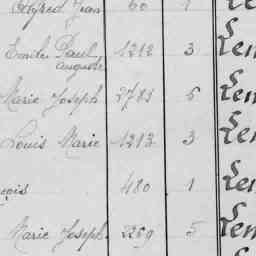 Alfred Jean 60 1 Le
Emile Paul 1212 3 Len
Auguste
Marie Joseph 2785 5 Len
Louis Marie 1213 3 Len
çois 480 1 Len
Marie Joseph 2269 5 Len